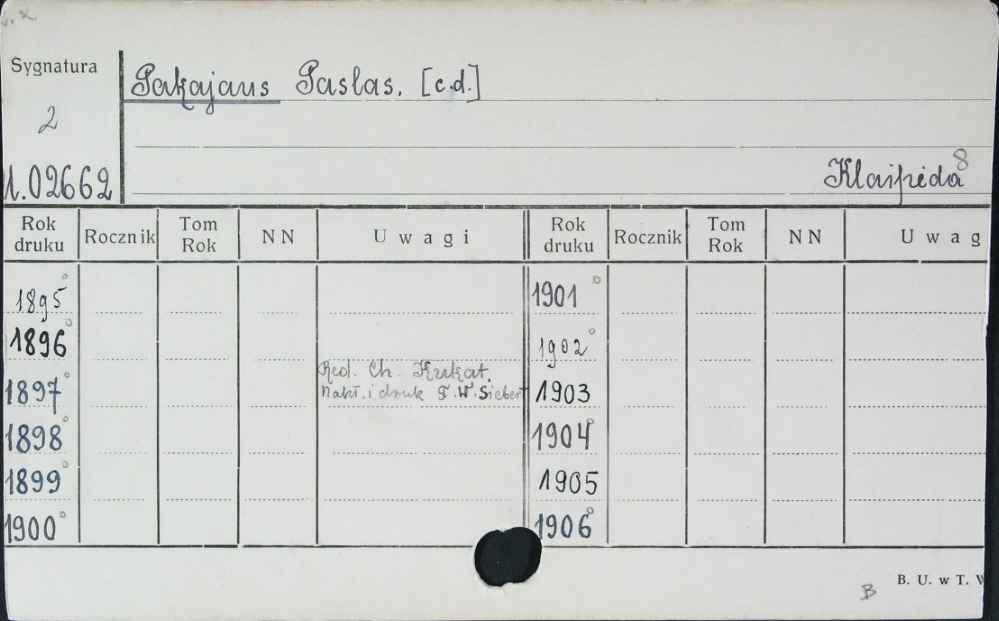 Sygnatura
Pakajaus Paslas. [c.d.]
2
1.02662
Klaipėda 8
Rok druku Rocznik Tom Rok NN Uwagi Rok druku Rocznik Tom Rok NN Uwag
1895° 1901°
1896° 1902°
Red. Ch. Krukat.
1897° Nakł. i druk F. W. Siebert 1903
1898° 1904°
1899° 1905
1900° 1906°
B
B. U. w T.